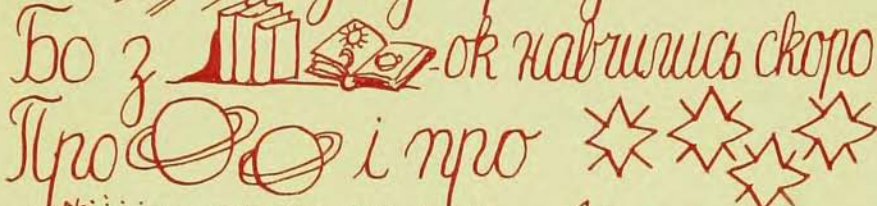 Бо з -ок навчились скоро
Про і про